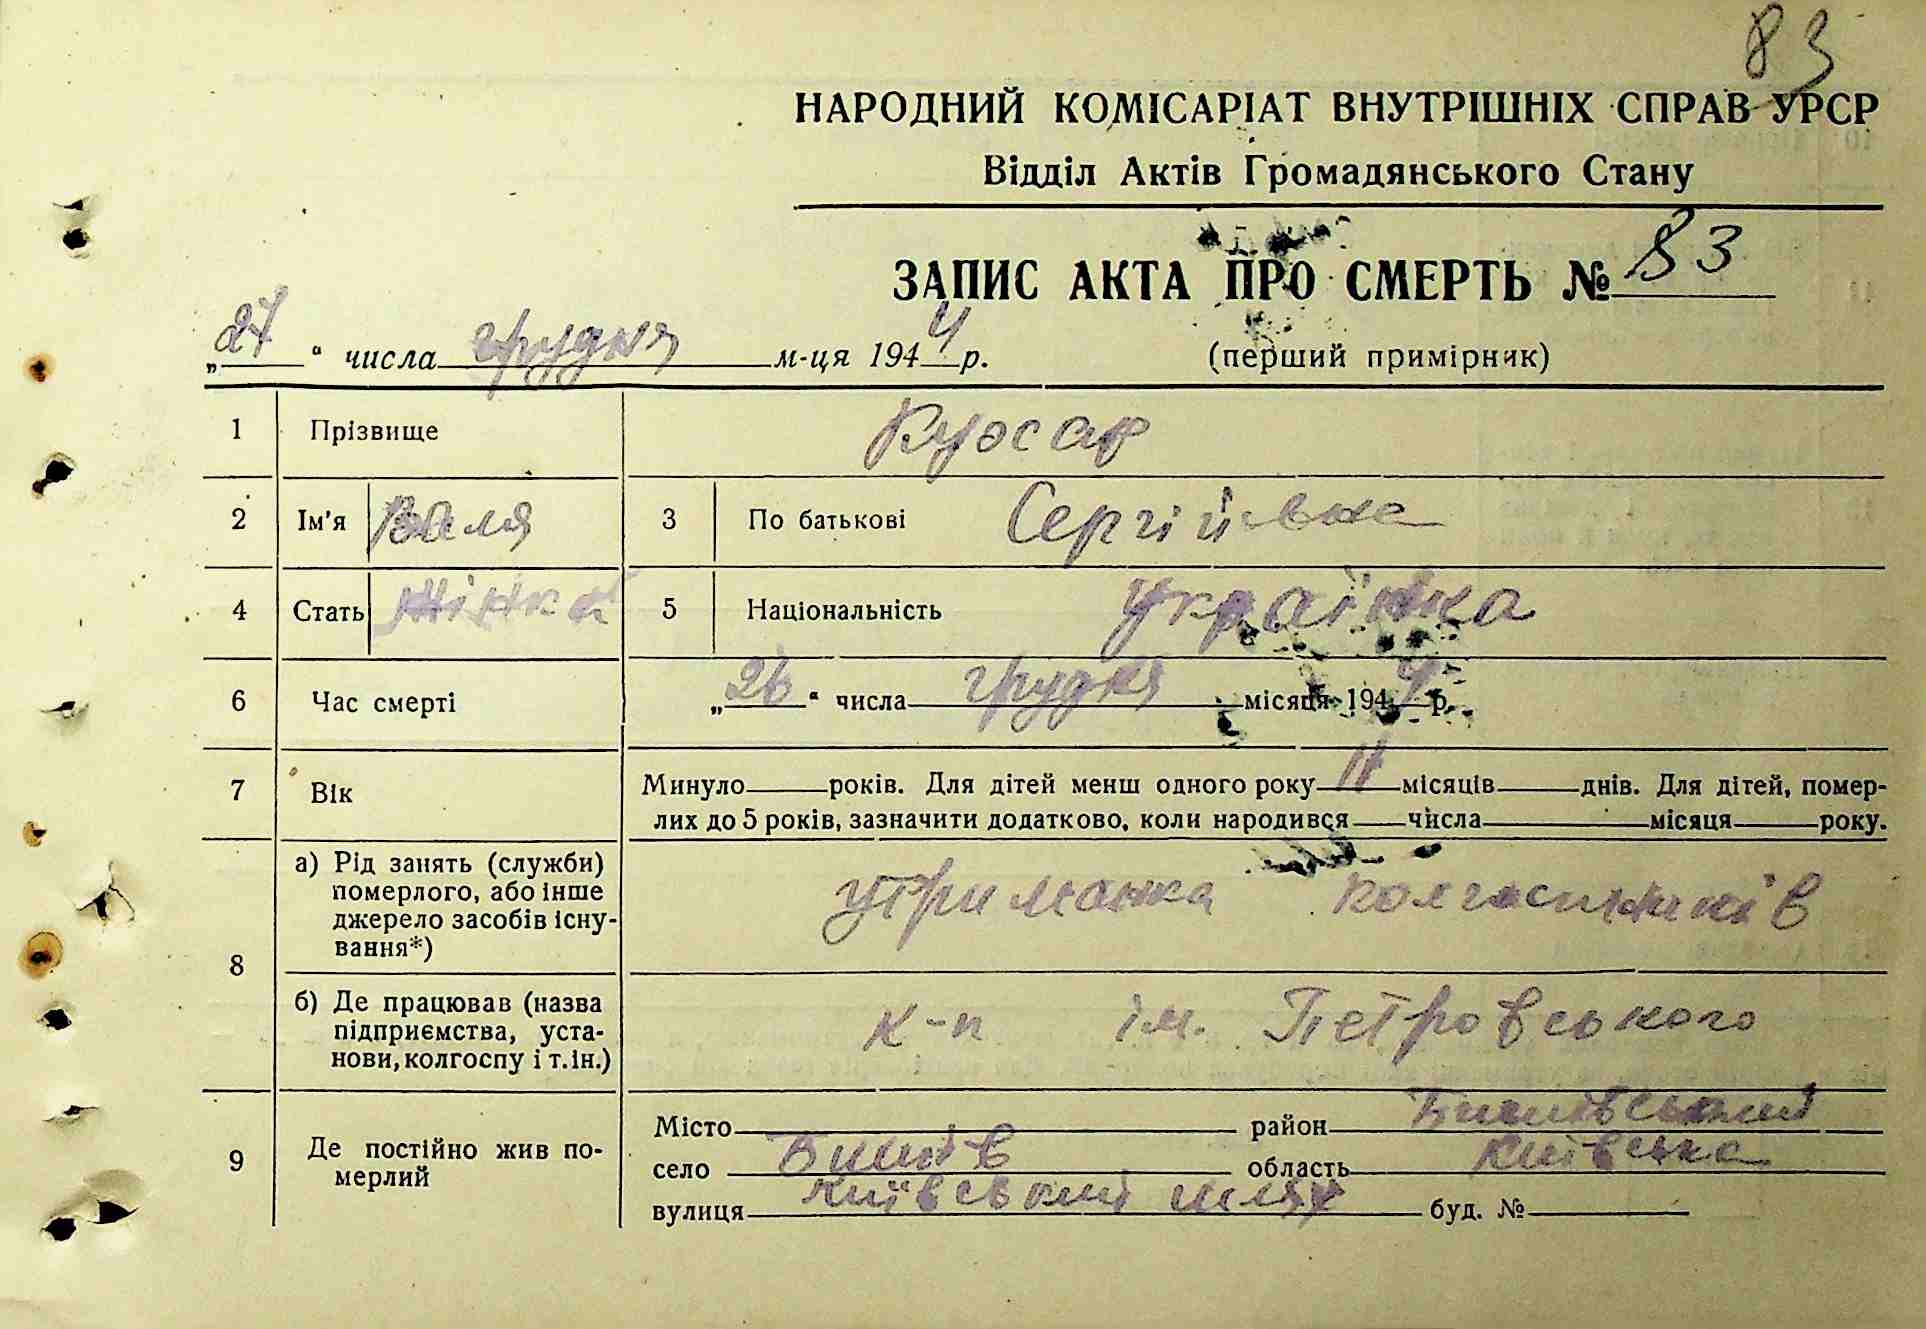 83
НАРОДНИЙ КОМІСАРІАТ ВНУТРІШНІХ СПРАВ УРСР
Відділ Актів Громадянського Стану
ЗАПИС АКТА ПРО СМЕРТЬ № 83
„27“ числа грудня м-ця 1944 р. (перший примірник)
1 Прізвище
2 Ім'я Валя 3 По батькові Сергіївна
4 Стать жінка 5 Національність українка
6 Час смерті „26“ числа грудня місяця 1944 р.
7 Вік Минуло ___ років. Для дітей менш одного року 11 місяців ___ днів. Для дітей, помер-
лих до 5 років, зазначити додатково, коли народився ___ числа ___ місяця ___ року.
8 а) Рід занять (служби) померлого, або інше джерело засобів існу-вання*) утриманка колгоспників
б) Де працював (назва підприємства, уста-нови, колгоспу і т. ін.) к-п ім. Петровського
9 Де постійно жив по-мерлий Місто ___ район Бишівський
село Бишів область Київська
вулиця Київський шлях буд. №